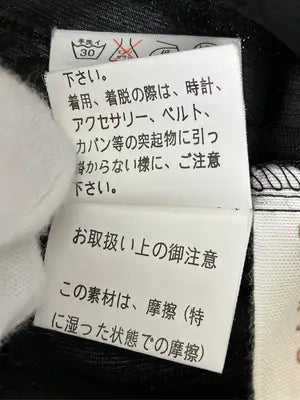 手洗イ
30
下さい。
着用、着脱の際は、時計、
アクセサリー、ベルト、
カバン等の突起物に引っ
掛からない様に、ご注意
下さい。
お取扱い上の御注意
この素材は、摩擦（特
に湿った状態での摩擦）